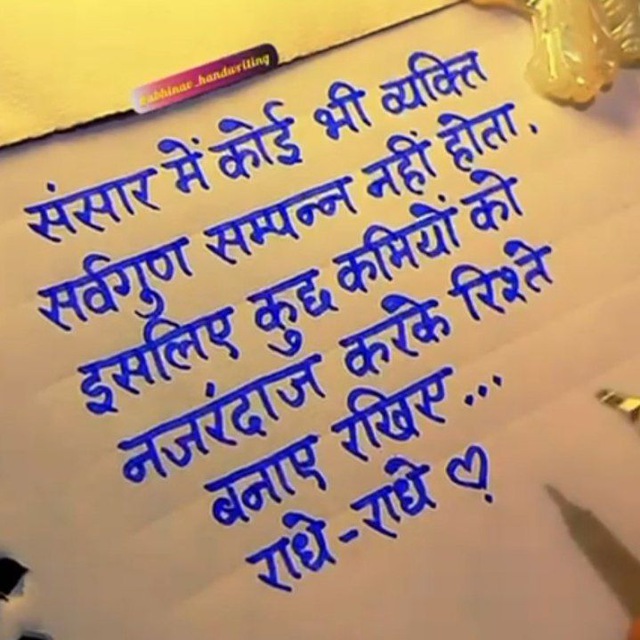 @abhinav_handwriting
संसार में कोई भी व्यक्ति
सर्वगुण सम्पन्न नहीं होता.
इसलिए कुछ कमियों को
नजरंदाज करके रिश्ते
बनाए रखिए...
राधे-राधे